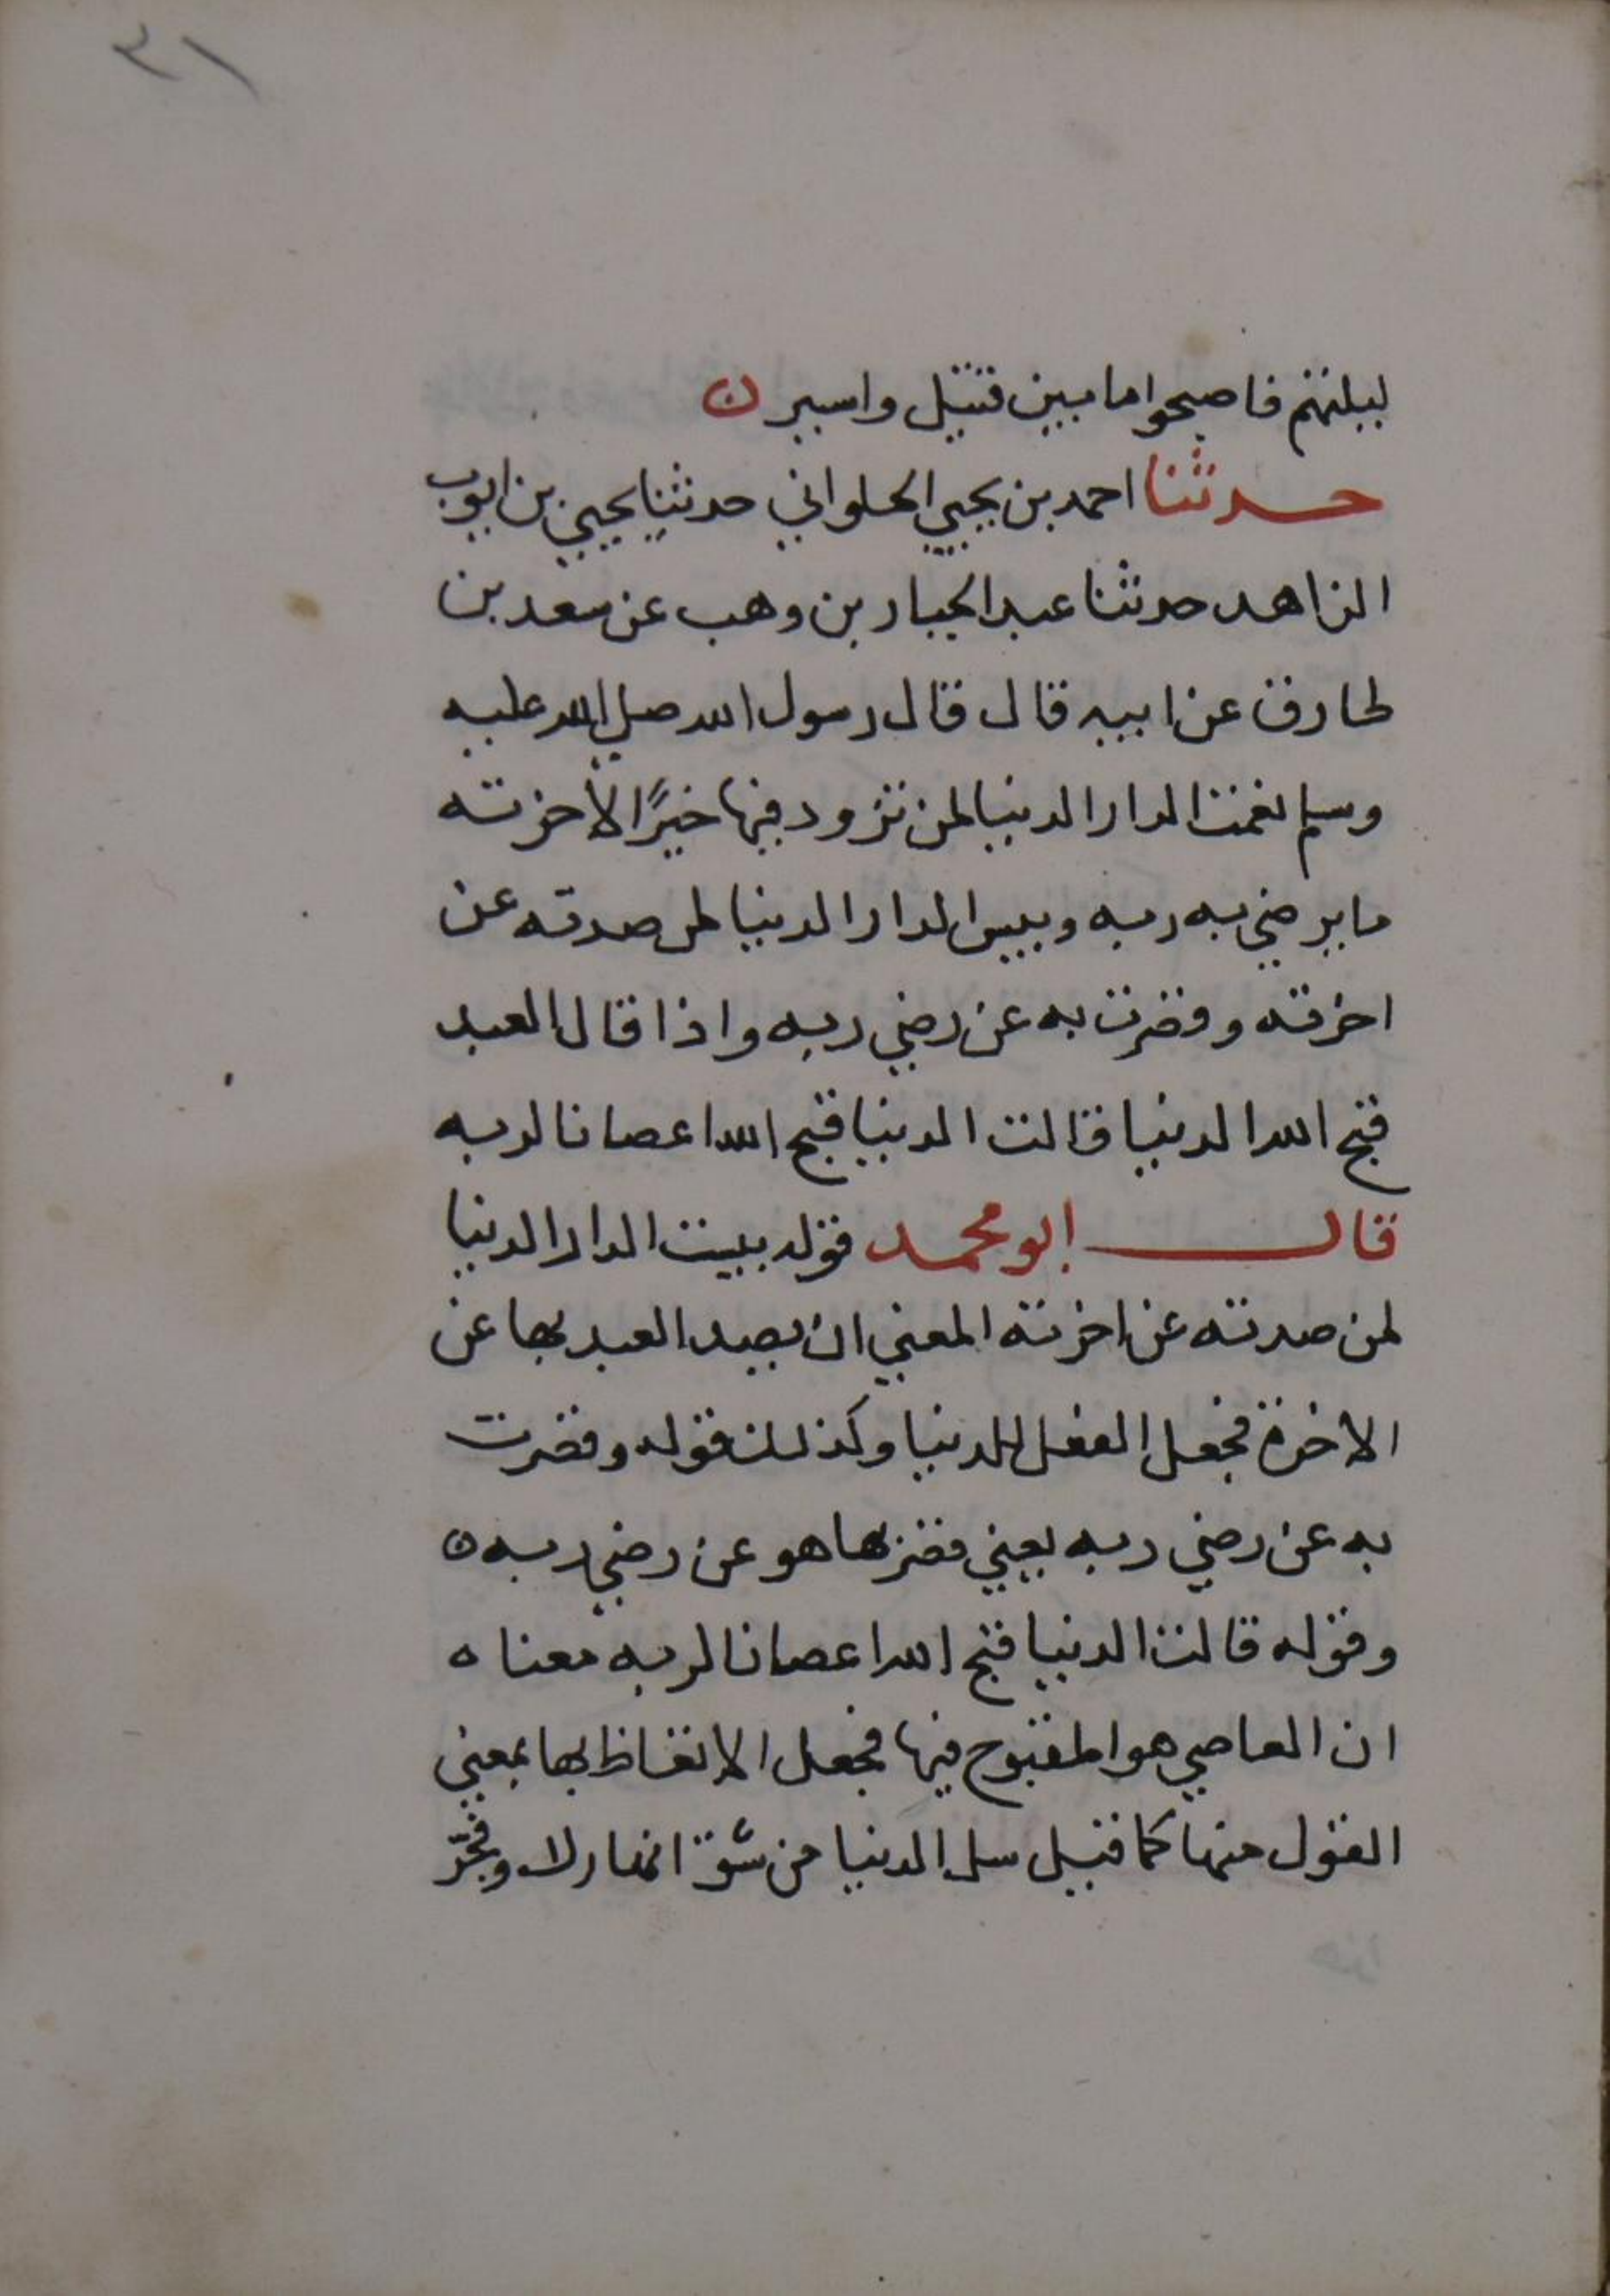 ٣١
ليلتهم فاصبحوا ما بين قتيل واسير ن
حدثنا احمد بن يحيي الحلواني حدثنا يحيي بن ايوب
الزاهد حدثنا عبد الجبار بن وهب عن سعد بن
طارق عن ابيه قال قال رسول الله صلي الله عليه
وسلم نعمت الدار الدنيا لمن تزود فيها خيرًا لاخرته
ما يرضي به ربه وبيس الدار الدنيا لمن صدته عن
اخرته وقصرت به عن رضي ربه واذا قال العبد
قبح الله الدنيا قالت الدنيا قبح الله اعصانا لربه
قال ابو محمد قوله بيست الدار الدنيا
لمن صدته عن اخرته المعني ان يصد العبد بها عن
الاخرة فجعل الفعل للدنيا وكذلك قوله وقصرت
به عن رضي ربه يعني قصر بها هو عن رضي ربه ن
وقوله قالت الدنيا قبح الله اعصانا لربه معناه
ان العاصي هو المقبوح فيها فجعل الاتعاظ بها بمعني
القول منها كما قيل سل الدنيا من شق انهارك وفجّر